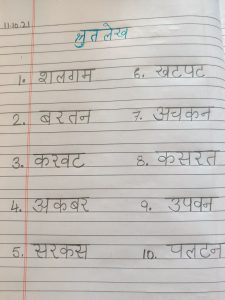 11.10.21
श्रुत लेख
1. शलगम
2. बरतन
3. करवट
4. अकबर
5. सरकस
6. खटपट
7. अचकन
8. कसरत
9. उपवन
10. पलटन